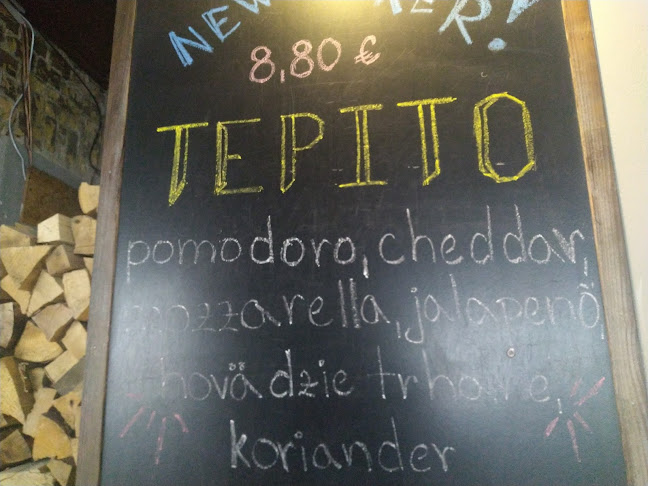 NEW
8,80 €
TEPITO
pomodoro, cheddar,
mozzarella, jalapeňo,
hovädzie trhané,
koriander